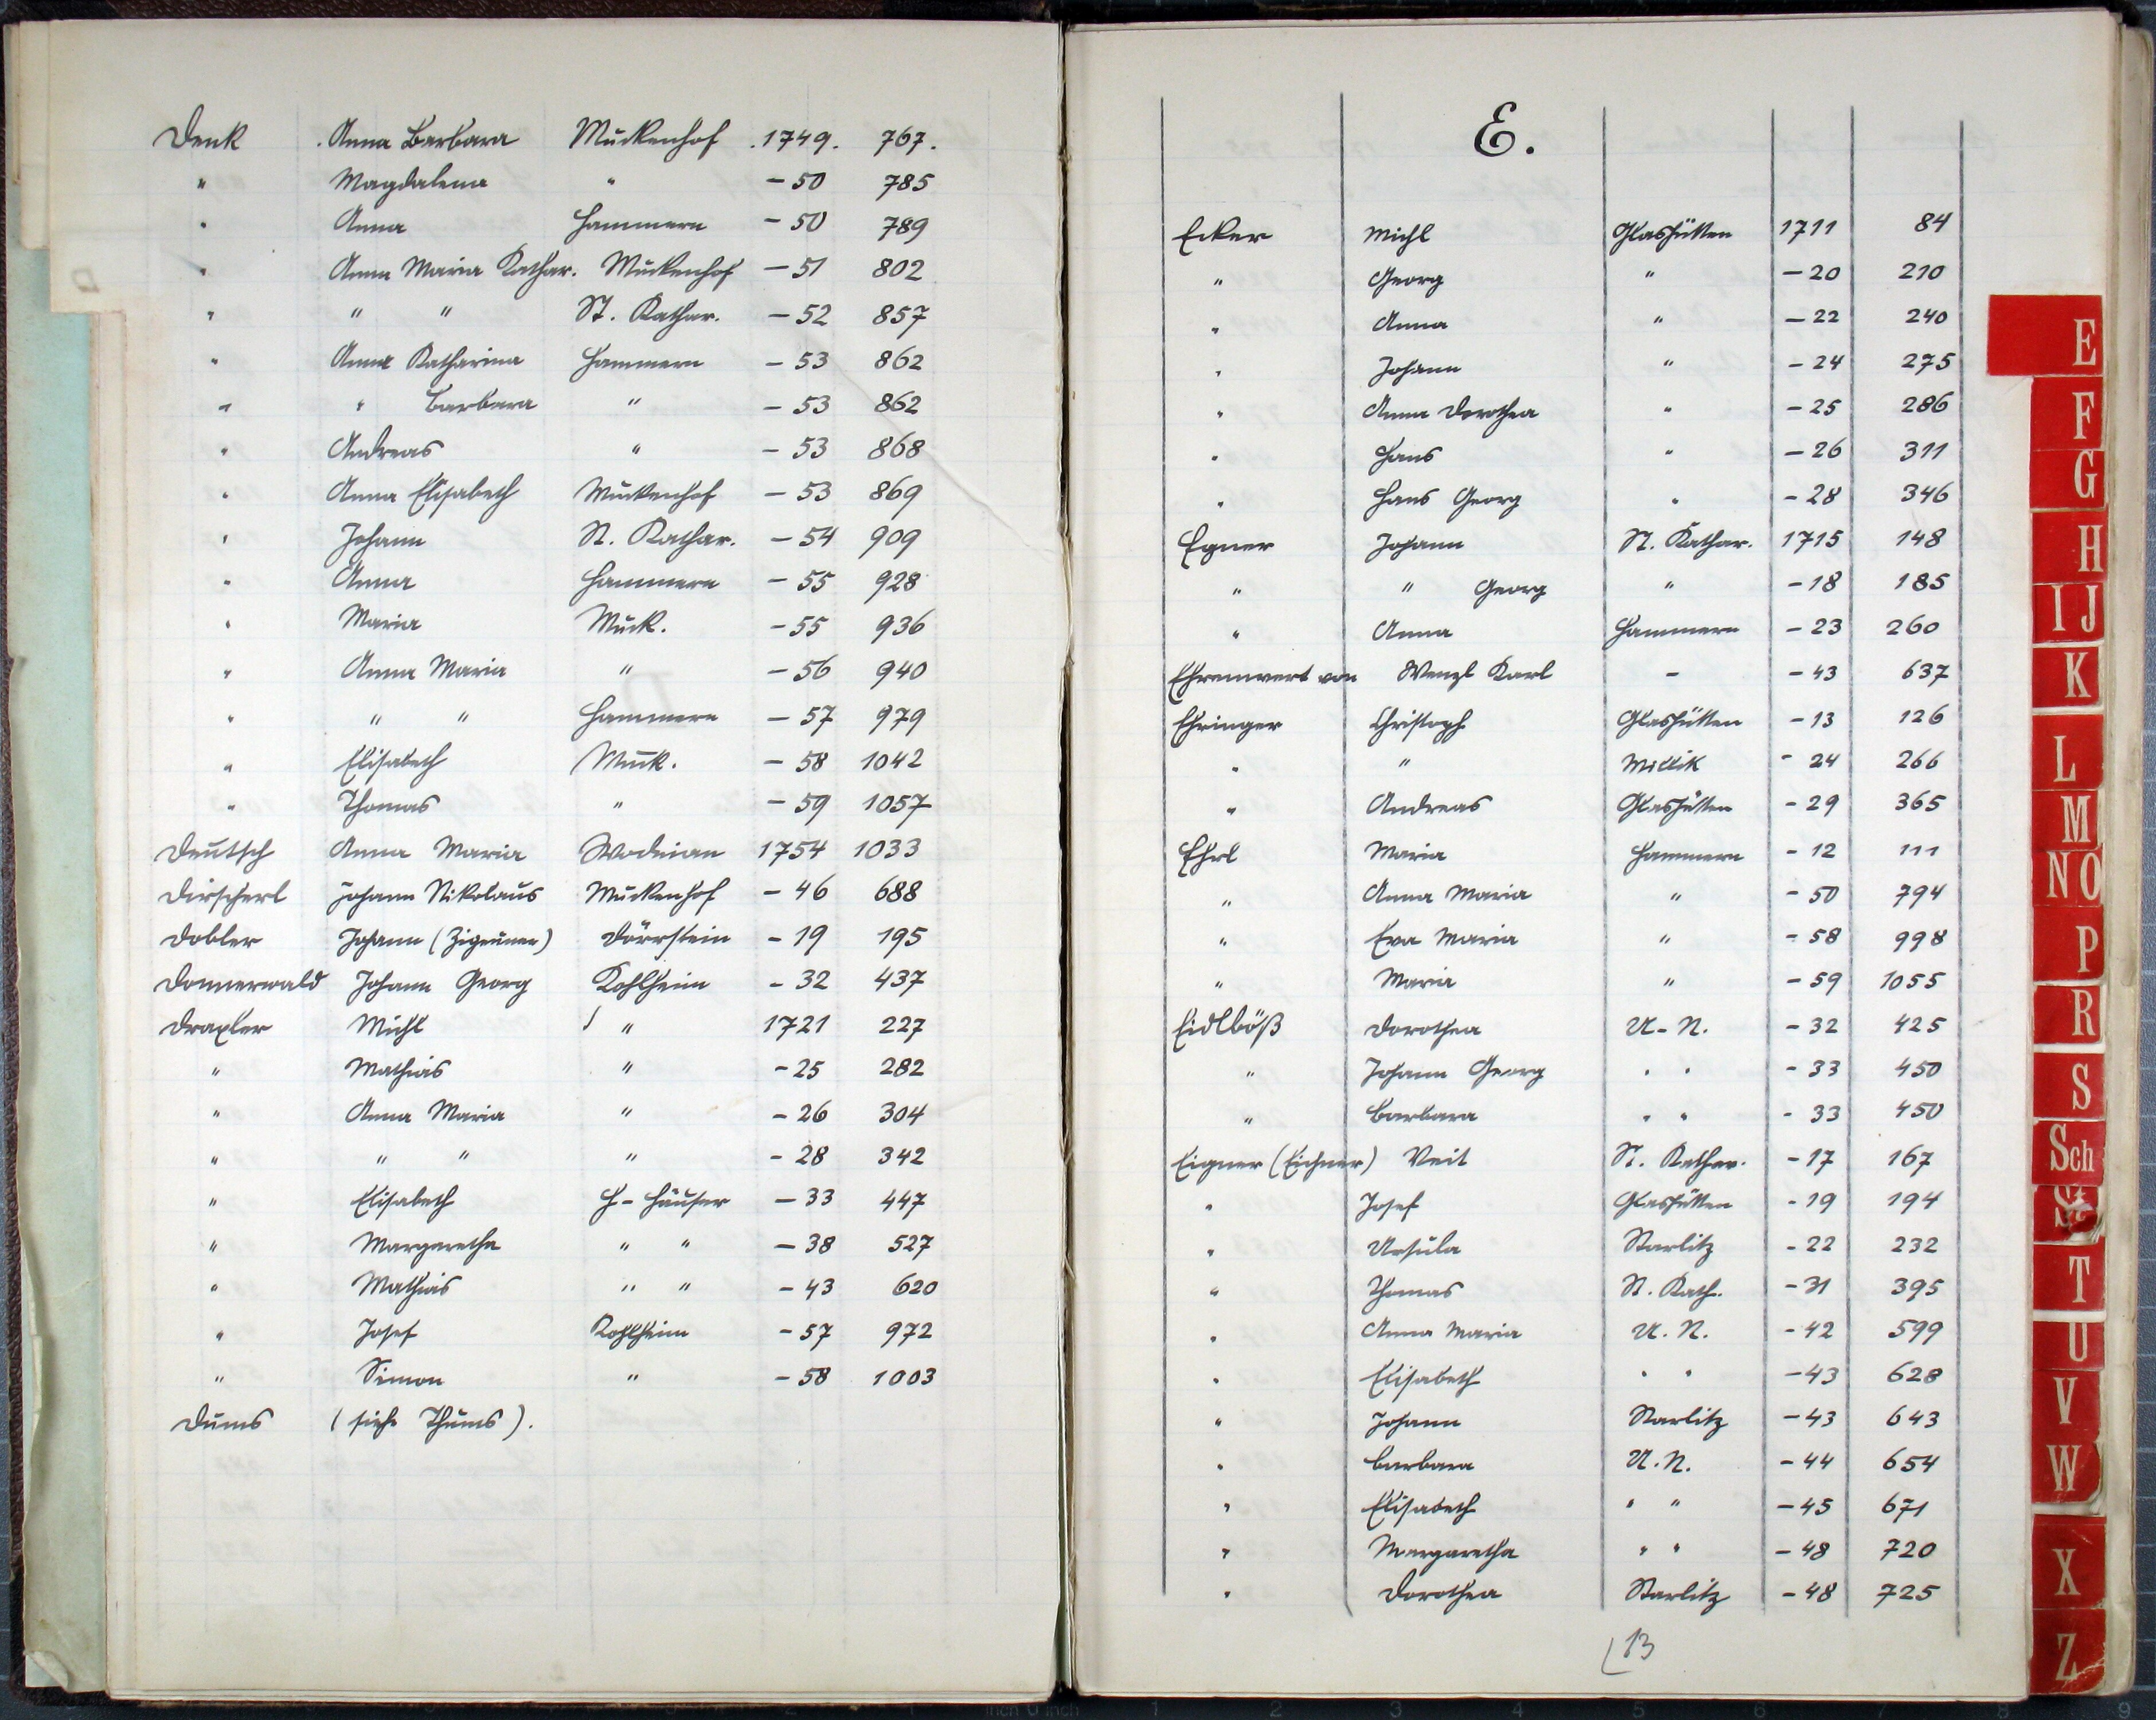 Denk Anna Barbara Muckenhof 1749. 767.
" Magdalena " - 50 785
" Anna Hammern - 50 789
" Anna Maria Kathar. Muckenhof - 51 802
" " " St. Kathar. - 52 857
" Anna Katharina Hammern - 53 862
" " Barbara " - 53 862
" Andreas " - 53 868
" Anna Elisabeth Muckenhof - 53 869
" Johann St. Kathar. - 54 909
" Anna Hammern - 55 928
" Maria Muck. - 55 936
" Anna Maria " - 56 940
" " " Hammern - 57 979
" Elisabeth Muck. - 58 1042
" Thomas " - 59 1057
Deutsch Anna Maria Wodnian 1754 1033
Dirscherl Johann Nikolaus Muckenhof - 46 688
Dobler Johann (Zigeuner) Dörrstein - 19 195
Donnerwald Johann Georg Kohlheim - 32 437
Draxler Michl " 1721 227
" Mathias " - 25 282
" Anna Maria " - 26 304
" " " " - 28 342
" Elisabeth H-Häuser - 33 447
" Margaretha " " - 38 527
" Mathias " " - 43 620
" Josef Kohlheim - 57 972
" Simon " - 58 1003
Dums (siehe Thums).
E.
Ecker Michl Glashütten 1711 84
" Georg " - 20 210
" Anna " - 22 240
" Johann " - 24 275
" Anna Dorothea " - 25 286
" Hans " - 26 311
" Hans Georg " - 28 346
Egner Johann St. Kathar. 1715 148
" " Georg " - 18 185
" Anna Hammern - 23 260
Ehrenwert von Wenzl Karl - - 43 637
Ehringer Christoph Glashütten - 13 126
" " Millik - 24 266
" Andreas Glashütten - 29 365
Ehrl Maria Hammern - 12 111
" Anna Maria " - 50 794
" Eva Maria " - 58 998
" Maria " - 59 1055
Eidlböß Dorothea U-N. - 32 425
" Johann Georg " " - 33 450
" Barbara " " - 33 450
Eigner (Eichner) Veit St. Kathar. - 17 167
" Josef Glashütten - 19 194
" Ursula Starlitz - 22 232
" Thomas St. Kath. - 31 395
" Anna Maria U. N. - 42 599
" Elisabeth " " - 43 628
" Johann Starlitz - 43 643
" Barbara U. N. - 44 654
" Elisabeth " " - 45 671
" Margaretha " " - 48 720
" Dorothea Starlitz - 48 725
13
E
F
G
H
IJ
K
L
M
NO
P
R
S
Sch
St
T
U
V
W
X
Z